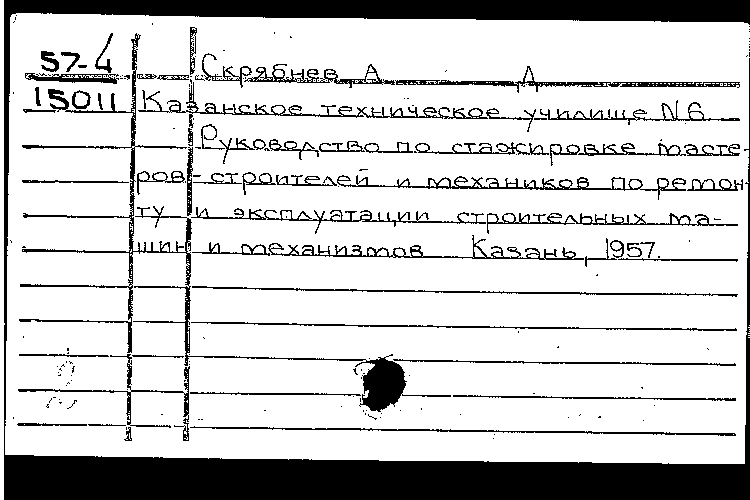 57-4 Скрябнев, А. Д.
15011 Казанское техническое училище N6
Руководство по стажировке масте-
ров-строителей и механиков по ремон-
ту и эксплуатации строительных ма-
шин и механизмов Казань, 1957.